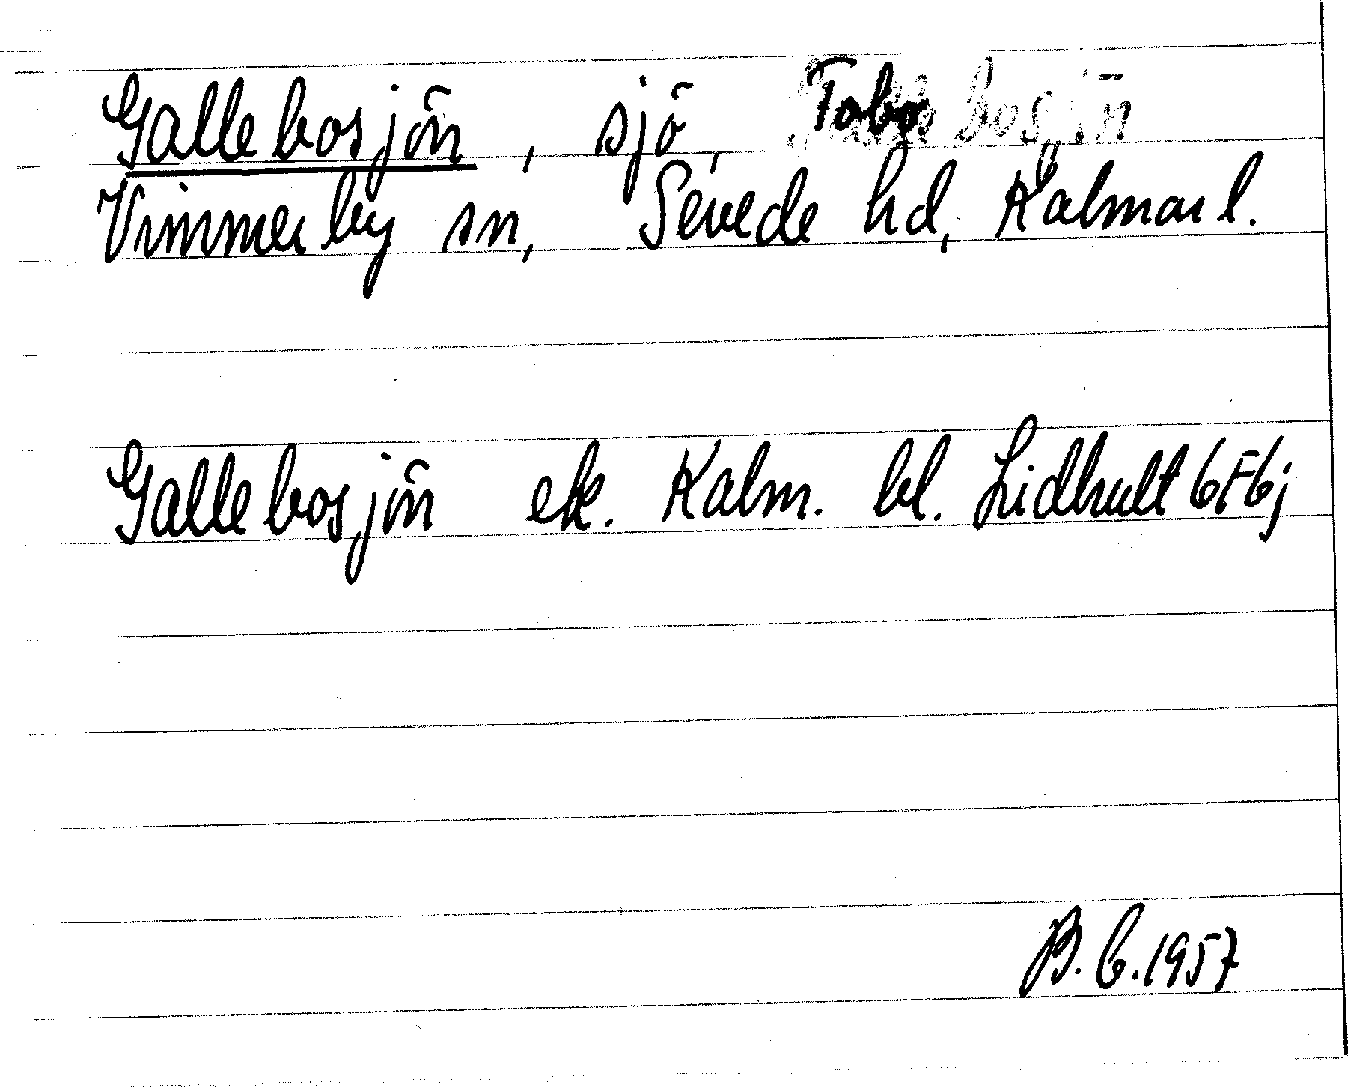 Gallebosjön, sjö, Tobo
Vimmerby sn, Sevede hd, Kalmar l.
Gallebosjön ek. Kalm. bl. Lidhult 6F6j
B.C. 1957